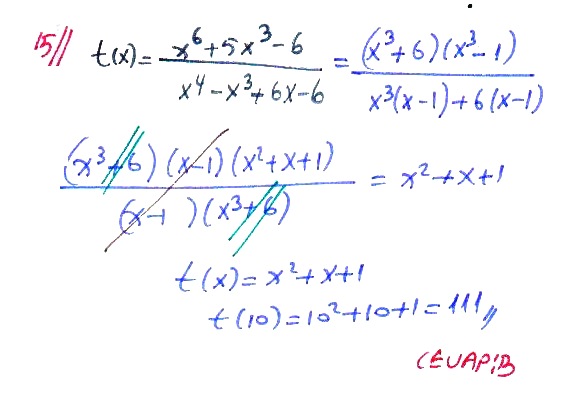 15// t(x) = x⁶+5x³-6 / x⁴-x³+6x-6 = (x³+6)(x³-1) / x³(x-1)+6(x-1)
(x³+6)(x-1)(x²+x+1) / (x-1)(x³+6) = x²+x+1
t(x) = x²+x+1
t(10) = 10²+10+1 = 111//
CEVAP:B